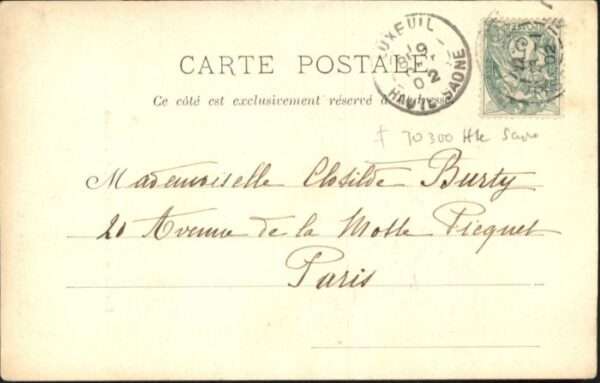 LUXEUIL
9
02
HAUTE-SAONE
CARTE POSTALE
Ce côté est exclusivement réservé à l'adresse
70300 Hte Saone
Mademoiselle Clotilde Burty
20 Avenue de la Motte Picquet
Paris